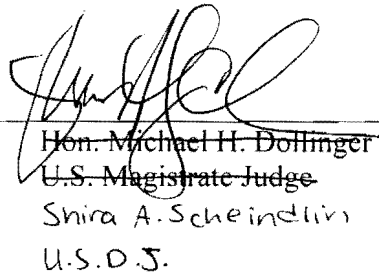 Hon. Michael H. Dollinger
U.S. Magistrate Judge
Shira A. Scheindlin
U.S.D.J.